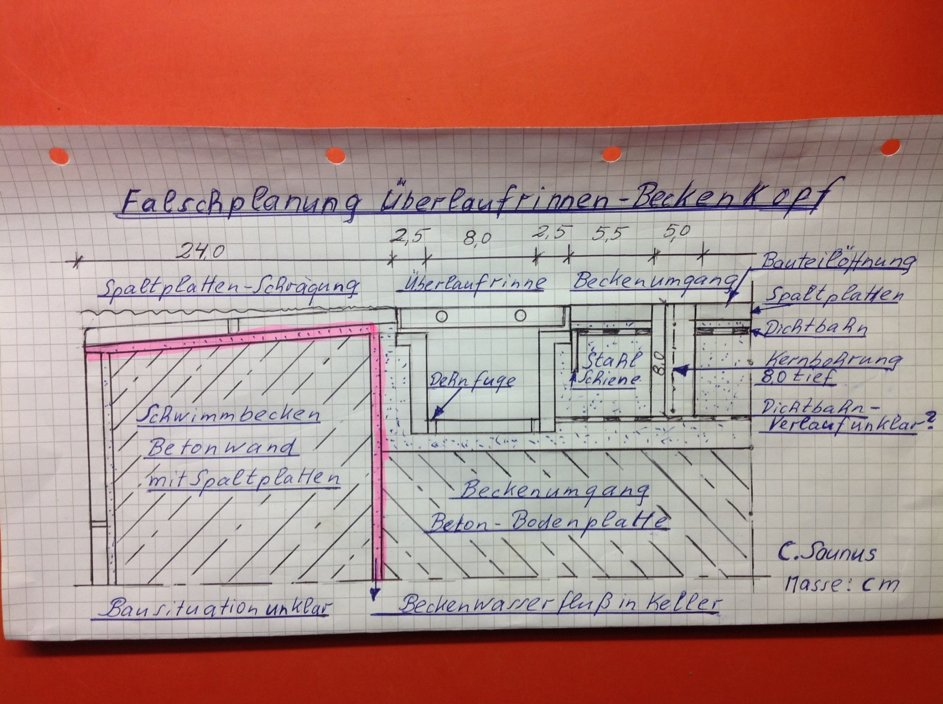 Falschplanung Überlaufrinnen-Beckenkopf
24,0 2,5 8,0 2,5 5,5 5,0
Spaltplatten-Schrägung
Überlaufrinne
Beckenumgang
Bauteilöffnung
Spaltplatten
Dichtbahn
Kernbohrung
8,0 tief
Dichtbahn-
Verlauf unklar?
Stahl
Schiene
8,0
Dehnfuge
Schwimmbecken
Betonwand
mit Spaltplatten
Beckenumgang
Beton-Bodenplatte
C. Saunus
Masse: cm
Bausituation unklar
Beckenwasserfluß in Keller